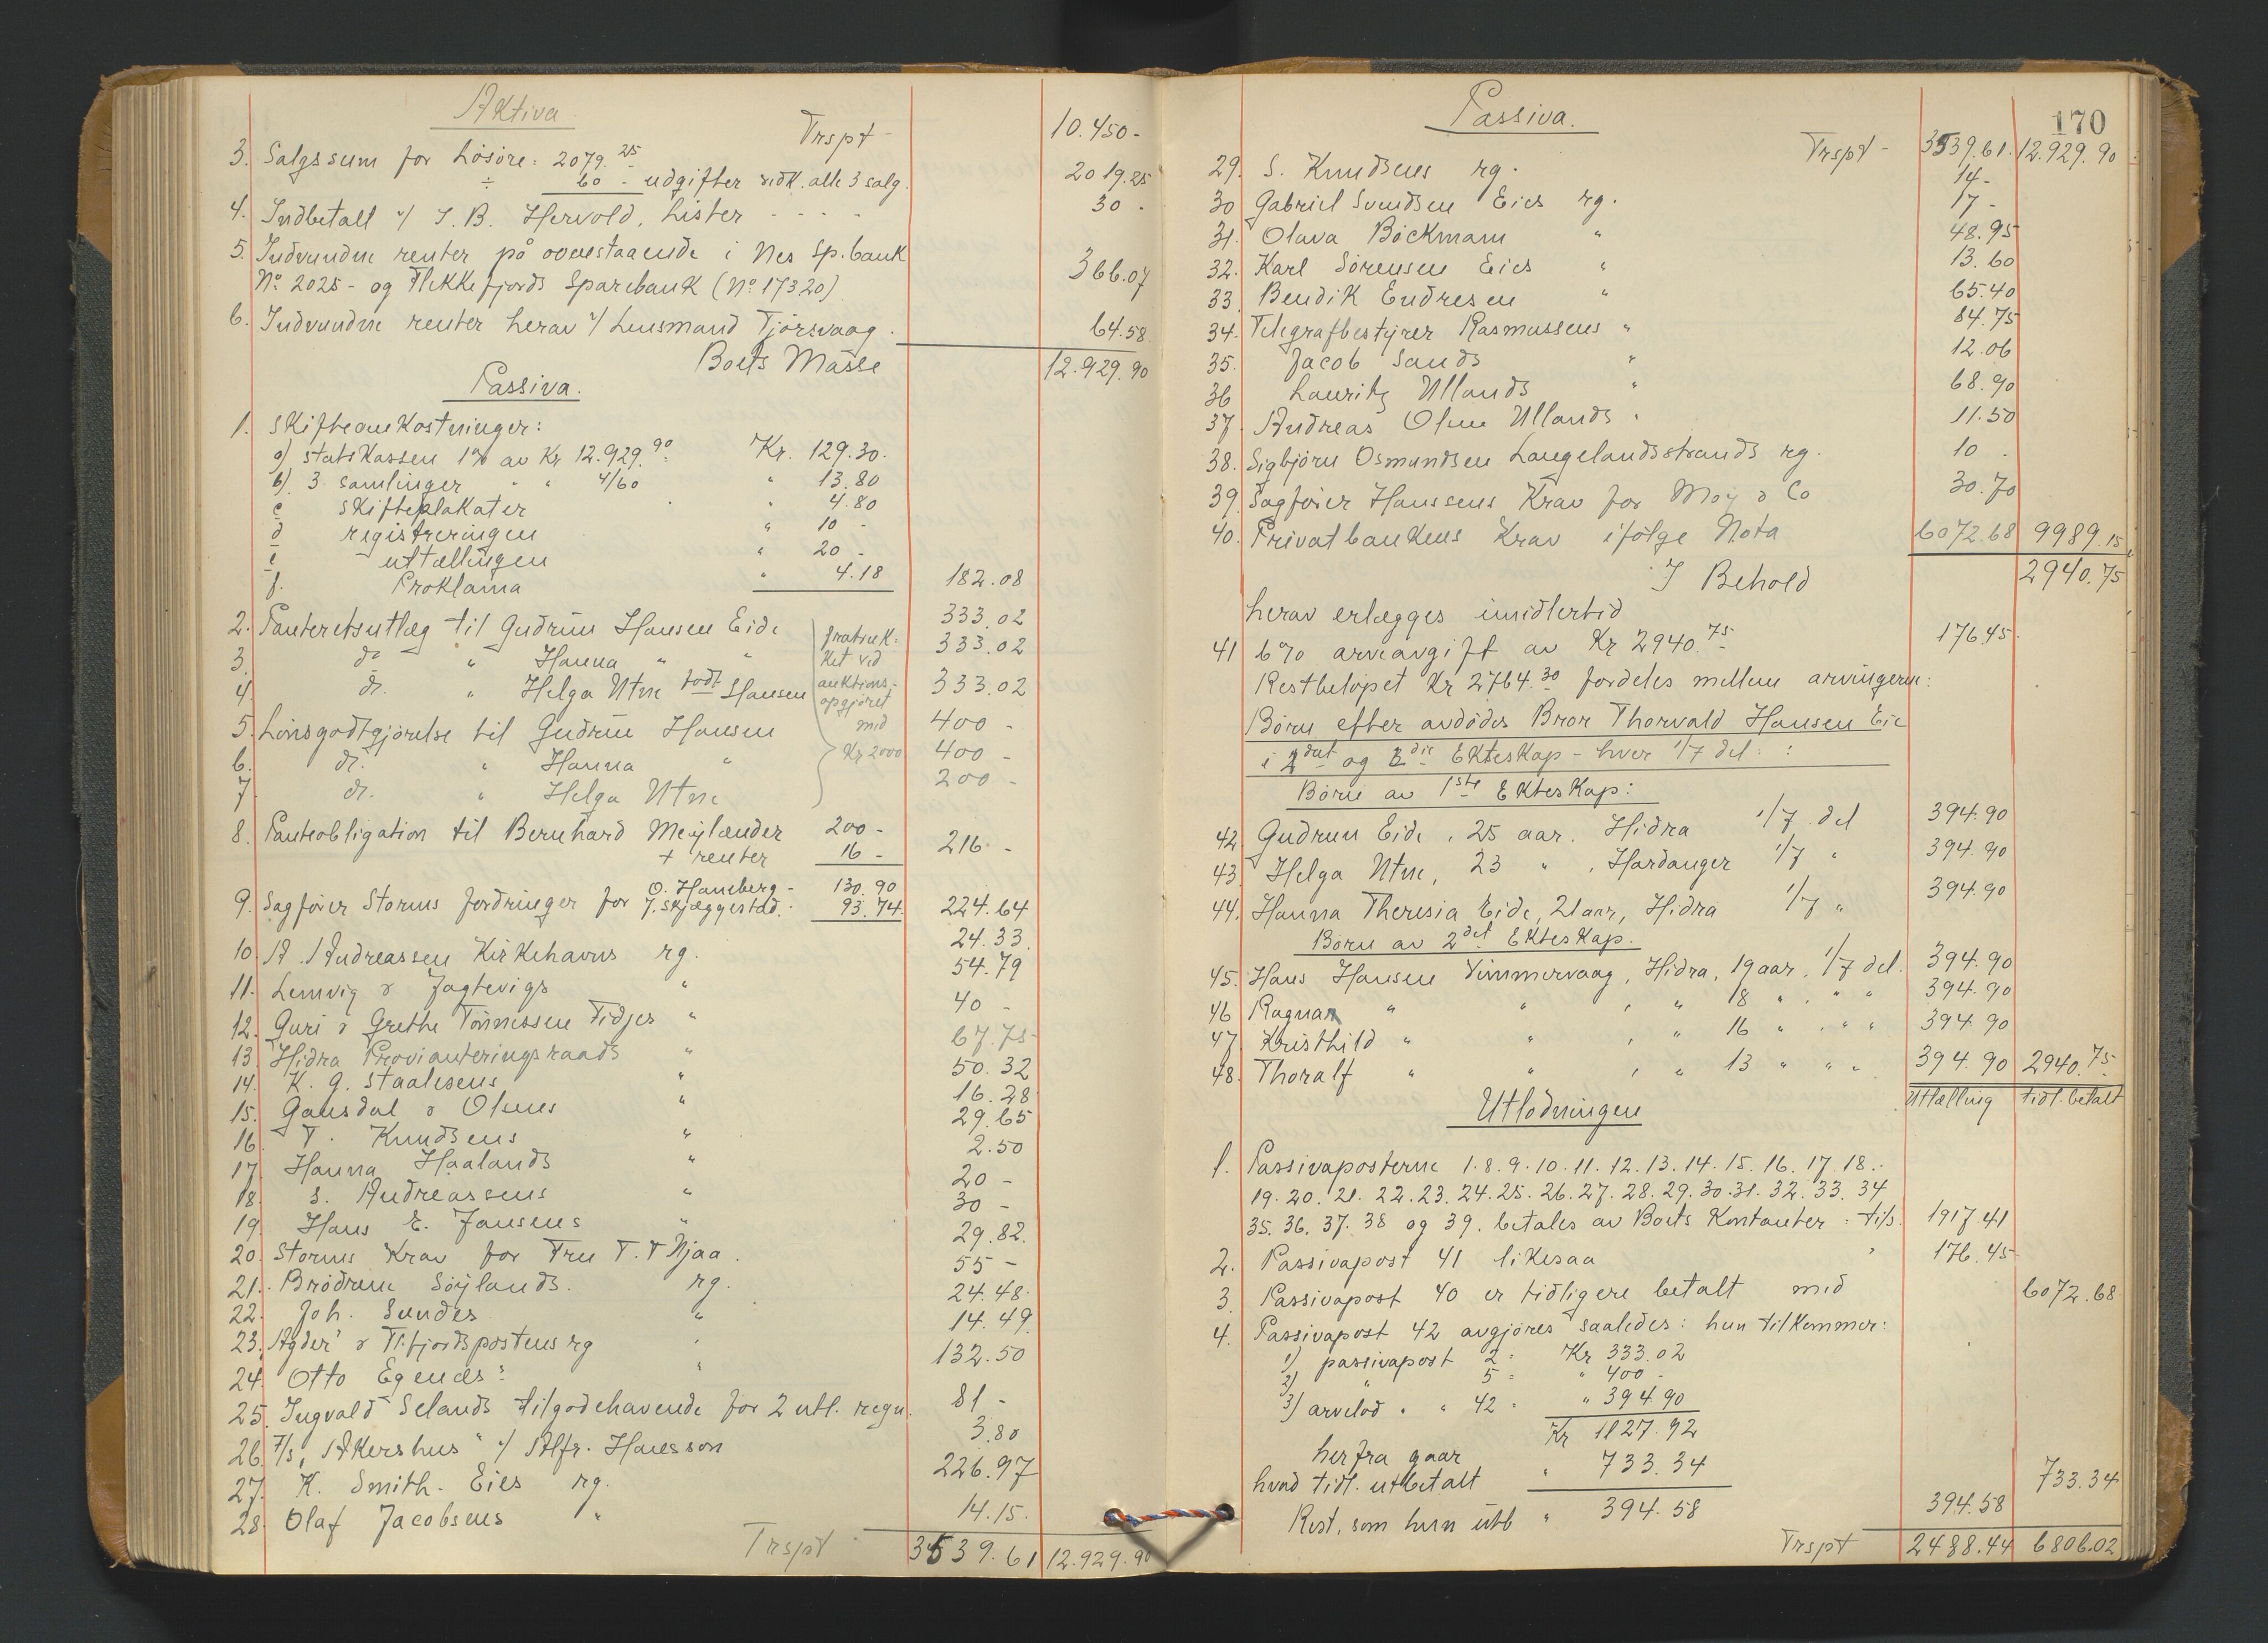 Aktiva
Trspt - 10.450 -
3. Salgssum for Løsøre: 2079.25
÷ 60 - udgifter vedk. alle 3 salg. 2019.25
4. Indbetalt v/ J. B. Hervold, Lister - - - - 30 -
5. Indvundne renter på ovenstaaende i Nes Sp.bank
No 2025 - og Flekkefjords Sparebank (No 17320) 366.07
6. Indvundne renter herav v/ Lensmand Tjørsvaag. 64.58
Boets Masse 12.929.90
Passiva.
1. Skifteomkostninger:
a) Statskassen 1% av Kr 12.929.90 Kr. 129.30.
b) 3 samlinger " " 4/60 " 13.80
c skifteplakater " 4.80
d registreringen " 10 -
e uttællingen " 20 -
f. Proklama " 4.18 182.08
2. Panteretsutlæg til Gudrun Hansen Eide fratruk- 333.02
3. do " Hanna " " ket ved 333.02
4. do. " Helga Utne født Hansen auktions- opgjøret 333.02
5. Lønsgodtgjørelse til Gudrun Hansen med 400 -
6. do. " Hanna " Kr 2000 400 -
7 do. " Helga Utne 200 -
8. Panteobligation til Bernhard Meylænder 200 -
+ renter 16 - 216 -
9. Sagfører Storms fordringer for O. Hamberg - 130.90
J. Skjæggestad. 93.74 224.64
10. A. Andreassen Kirkehavns rg. 24.33
11. Lemvig & Jagtevigs " 54.79
12. Guri & Grethe Tønnessen Fidjes " 40 -
13 Hidra Provianteringsraads " 67.75
14. K. G. Staalesens " 50.32
15. Gausdal & Olsens " 16.28
16. T. Knudsens " 29.65
17 Hanna Haalands " 2.50
18. S. Andreassens " 20 -
19. Hans E. Jansens " 30 -
20. Storms Krav for Fru T. T Njaa. 29.82.
21. Brødrene Søylands. rg. 55 -
22. Joh. Sundes " 24.48
23. "Agder" & Fl.fjordspostens rg " 14.49
24. Otto Egenæs: " 132.50
25. Ingvald Selands tilgodehavende for 2 utl. regn. 81 -
26. F/s "Akershus" v/ Alfr. Hansson 3.80
27. K. Smith - Eies rg. 226.97
28. Olaf Jacobsens " 14.15.
Trspt 3539.61 12.929.90
170
Passiva.
Trspt - 3539.61. 12.929.90
29. S. Knudsens rg. 14 -
30 Gabriel Svendsen Eies rg. 17 -
31. Olava Bøckmann " 48.95
32. Karl Sørensen Eies " 13.60
33. Bendik Endresen " 65.40
34. Telegrafbestyrer Rasmussens " 84.75
35. Jacob Sands " 12.06
36 Lauritz Ullands " 68.90
37. Andreas Olsen Ullands " 11.50
38. Sigbjørn Osmundsen Laugelandsstrands rg. 10 -
39. Sagfører Hanssens Krav for Moy & Co 30.70
40. Privatbankens Krav ifølge Nota 6072.68 9989.15
I Behold 2940.75
herav erlægges imidlertid
41 6% arveavgift av Kr 2940.75 176.45
Restbeløpet Kr 2764.30 fordeles mellem arvingerne:
Børn efter avdødes Bror Thorvald Hansen Eie
i 1ste og 2det Ekteskap - hver 1/7 del:
Børn av 1ste Ekteskap:
42 Gudrun Eide, 25 aar. Hidra 1/7 del 394.90
43. Helga Utne, 23 " , Hardanger 1/7 " 394.90
44. Hanna Theresia Eide, 21 aar, Hidra 1/7 " 394.90
Børn av 2det Ekteskap.
45. Hans Hansen Vimmervaag, Hidra, 19 aar, 1/7 del. 394.90
46 Ragnar " " , " 18 " , " " 394.90
47. Kristhild " " , " 16 " , " " 394.90
48. Thoralf " " , " 13 " " " 394.90 2940.75
Utlodningen Utælling tidl. betalt
1. Passivaposterne 1. 8. 9. 10. 11. 12. 13. 14. 15. 16. 17. 18..
19. 20. 21. 22. 23. 24. 25. 26. 27. 28. 29. 30. 31. 32. 33. 34
35. 36. 37. 38 og 39. betales av Boets Kontanter: tils. 1917.41
2. Passivapost 41 likesaa " 176.45
3. Passivapost 40 er tidligere betalt med 6072.68
4. Passivapost 42 avgjøres saaledes: hun tilkommer:
1) passivapost 2 = Kr 333.02
2) " 5 = " 400 -
3) arvelod " " 42 = " 394.90
Kr 1127.92
herfra gaar
hvad tidl. utbetalt " 733.34 733.34
Rest, som hun utb " 394.58 394.58
Trspt 2488.44 6806.02